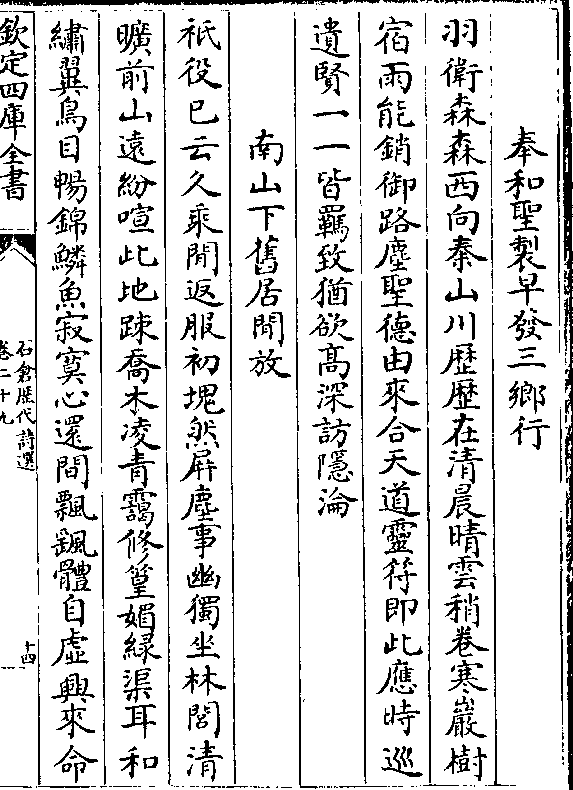 奉和聖製早發三鄉行
羽衛森森西向秦山川歷歷在清晨晴雲稍卷寒巖樹
宿雨能銷御路塵聖德由來合天道靈符即此應時巡
遺賢一一皆羈致猶欲髙深訪隱淪
南山下舊居閒放
祇役已云久乘閒返服初塊然屏塵事幽獨坐林閭清
曠前山遠紛喧此地踈喬木凌青靄修篁媚綠渠耳和
繡翼鳥目暢錦鱗魚寂寞心還閒飄飖體自虛興來命
欽定四庫全書
石倉歷代詩選
卷二十九
十四